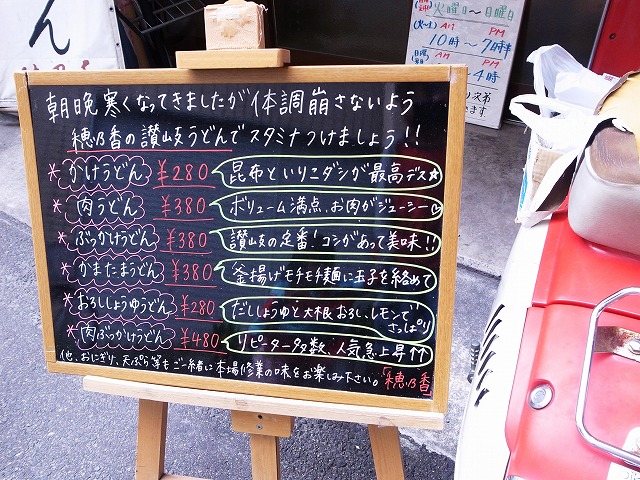 ん
朝晩寒くなってきましたが体調崩さないよう
穂乃香の讃岐うどんでスタミナつけましょう!!
*かけうどん ¥280 昆布といりこダシが最高デス★
*肉うどん ¥380 ボリューム満点、お肉がジューシー♡
*ぶっかけうどん ¥380 讃岐の定番!コシがあって美味!!
*かまたまうどん ¥380 釜揚げモチモチ麺に玉子を絡めて
*おろししょうゆうどん ¥280 だししょうゆと大根おろし、レモンで
さっぱり
*肉ぶっかけうどん ¥480 リピーター多数、人気急上昇↑↑
他、おにぎり、天ぷら等もご一緒に本場修業の味をお楽しみ下さい。「穂乃香」
火曜日〜日曜日
(火〜土) AM PM
10時〜7時半
AM PM
〜4時
次第
ます